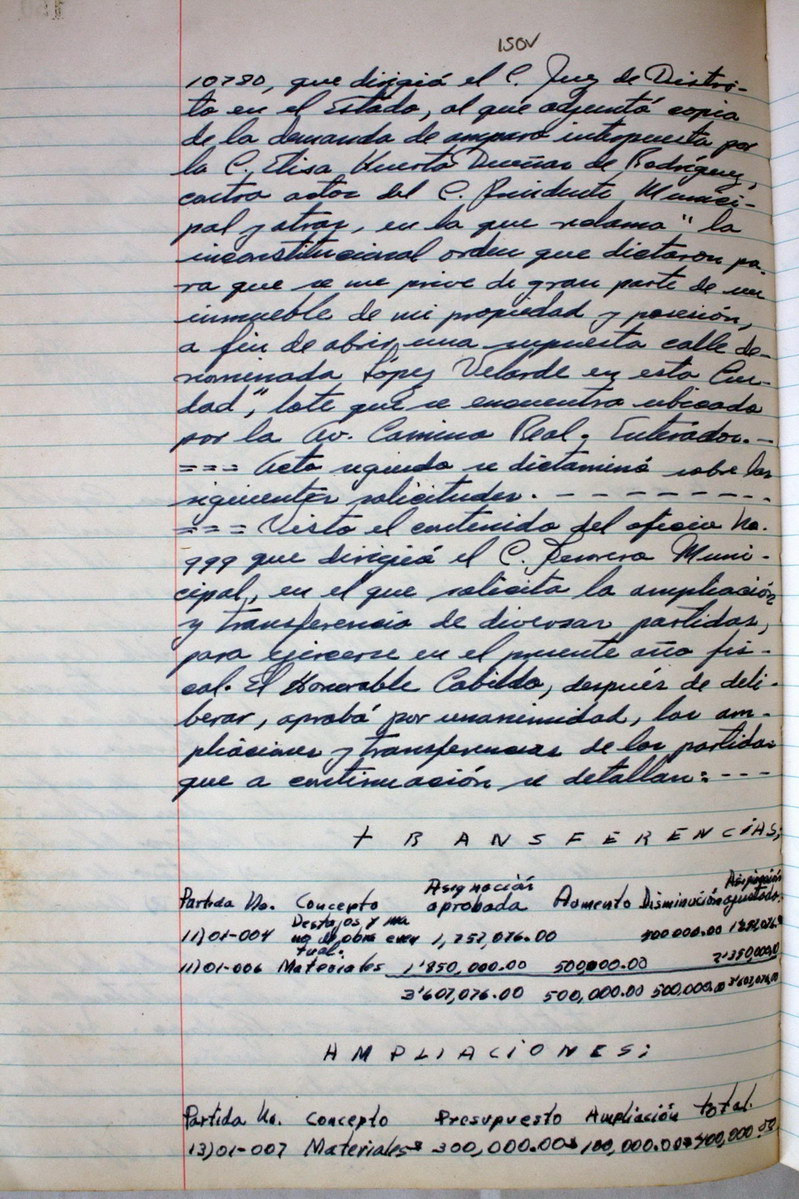 150v
10780, que dirigió el C. Juez de Distri-
to en el Estado, al que adjuntó copia
de la demanda de amparo interpuesta por
la C. Elisa Huerta Dueñas de Rodríguez,
contra actos del C. Presidente Munici-
pal y otras, en la que reclama "la
inconstitucional orden que dictaron pa-
ra que se me prive de gran parte de un
inmueble de mi propiedad y posesión,
a fin de abrir una supuesta calle de-
nominada López Velarde en esta Ciu-
dad", lote que se encuentra ubicado
por la Av. Camino Real. Enterados. -
=== Acto seguido se dictaminó sobre las
siguientes solicitudes. - - - - - - - -
=== Visto el contenido del oficio No.
999 que dirigió el C. Tesorero Muni-
cipal, en el que solicita la ampliación
y transferencia de diversas partidas,
para ejercerse en el presente año fis-
cal. El Honorable Cabildo, después de deli-
berar, aprobó por unanimidad, las am-
pliaciones y transferencias de las partidas
que a continuación se detallan: - - -
TRANSFERENCIAS;
Partida No. Concepto Asignación aprobada Aumento Disminución Asignación ajustada
11)01-004 Destajos y ma no de obra even tual. 1,757,076.00 500,000.00
11)01-006 Materiales 1'850,000.00 500,000.00 2'350,000.0
3'607,076.00 500,000.00 500,000.00 3'607,076.00
AMPLIACIONES;
Partida No. Concepto Presupuesto Ampliación total.
13)01-007 Materiales $ 300,000.00 $ 100,000.00 $ 400,000.00